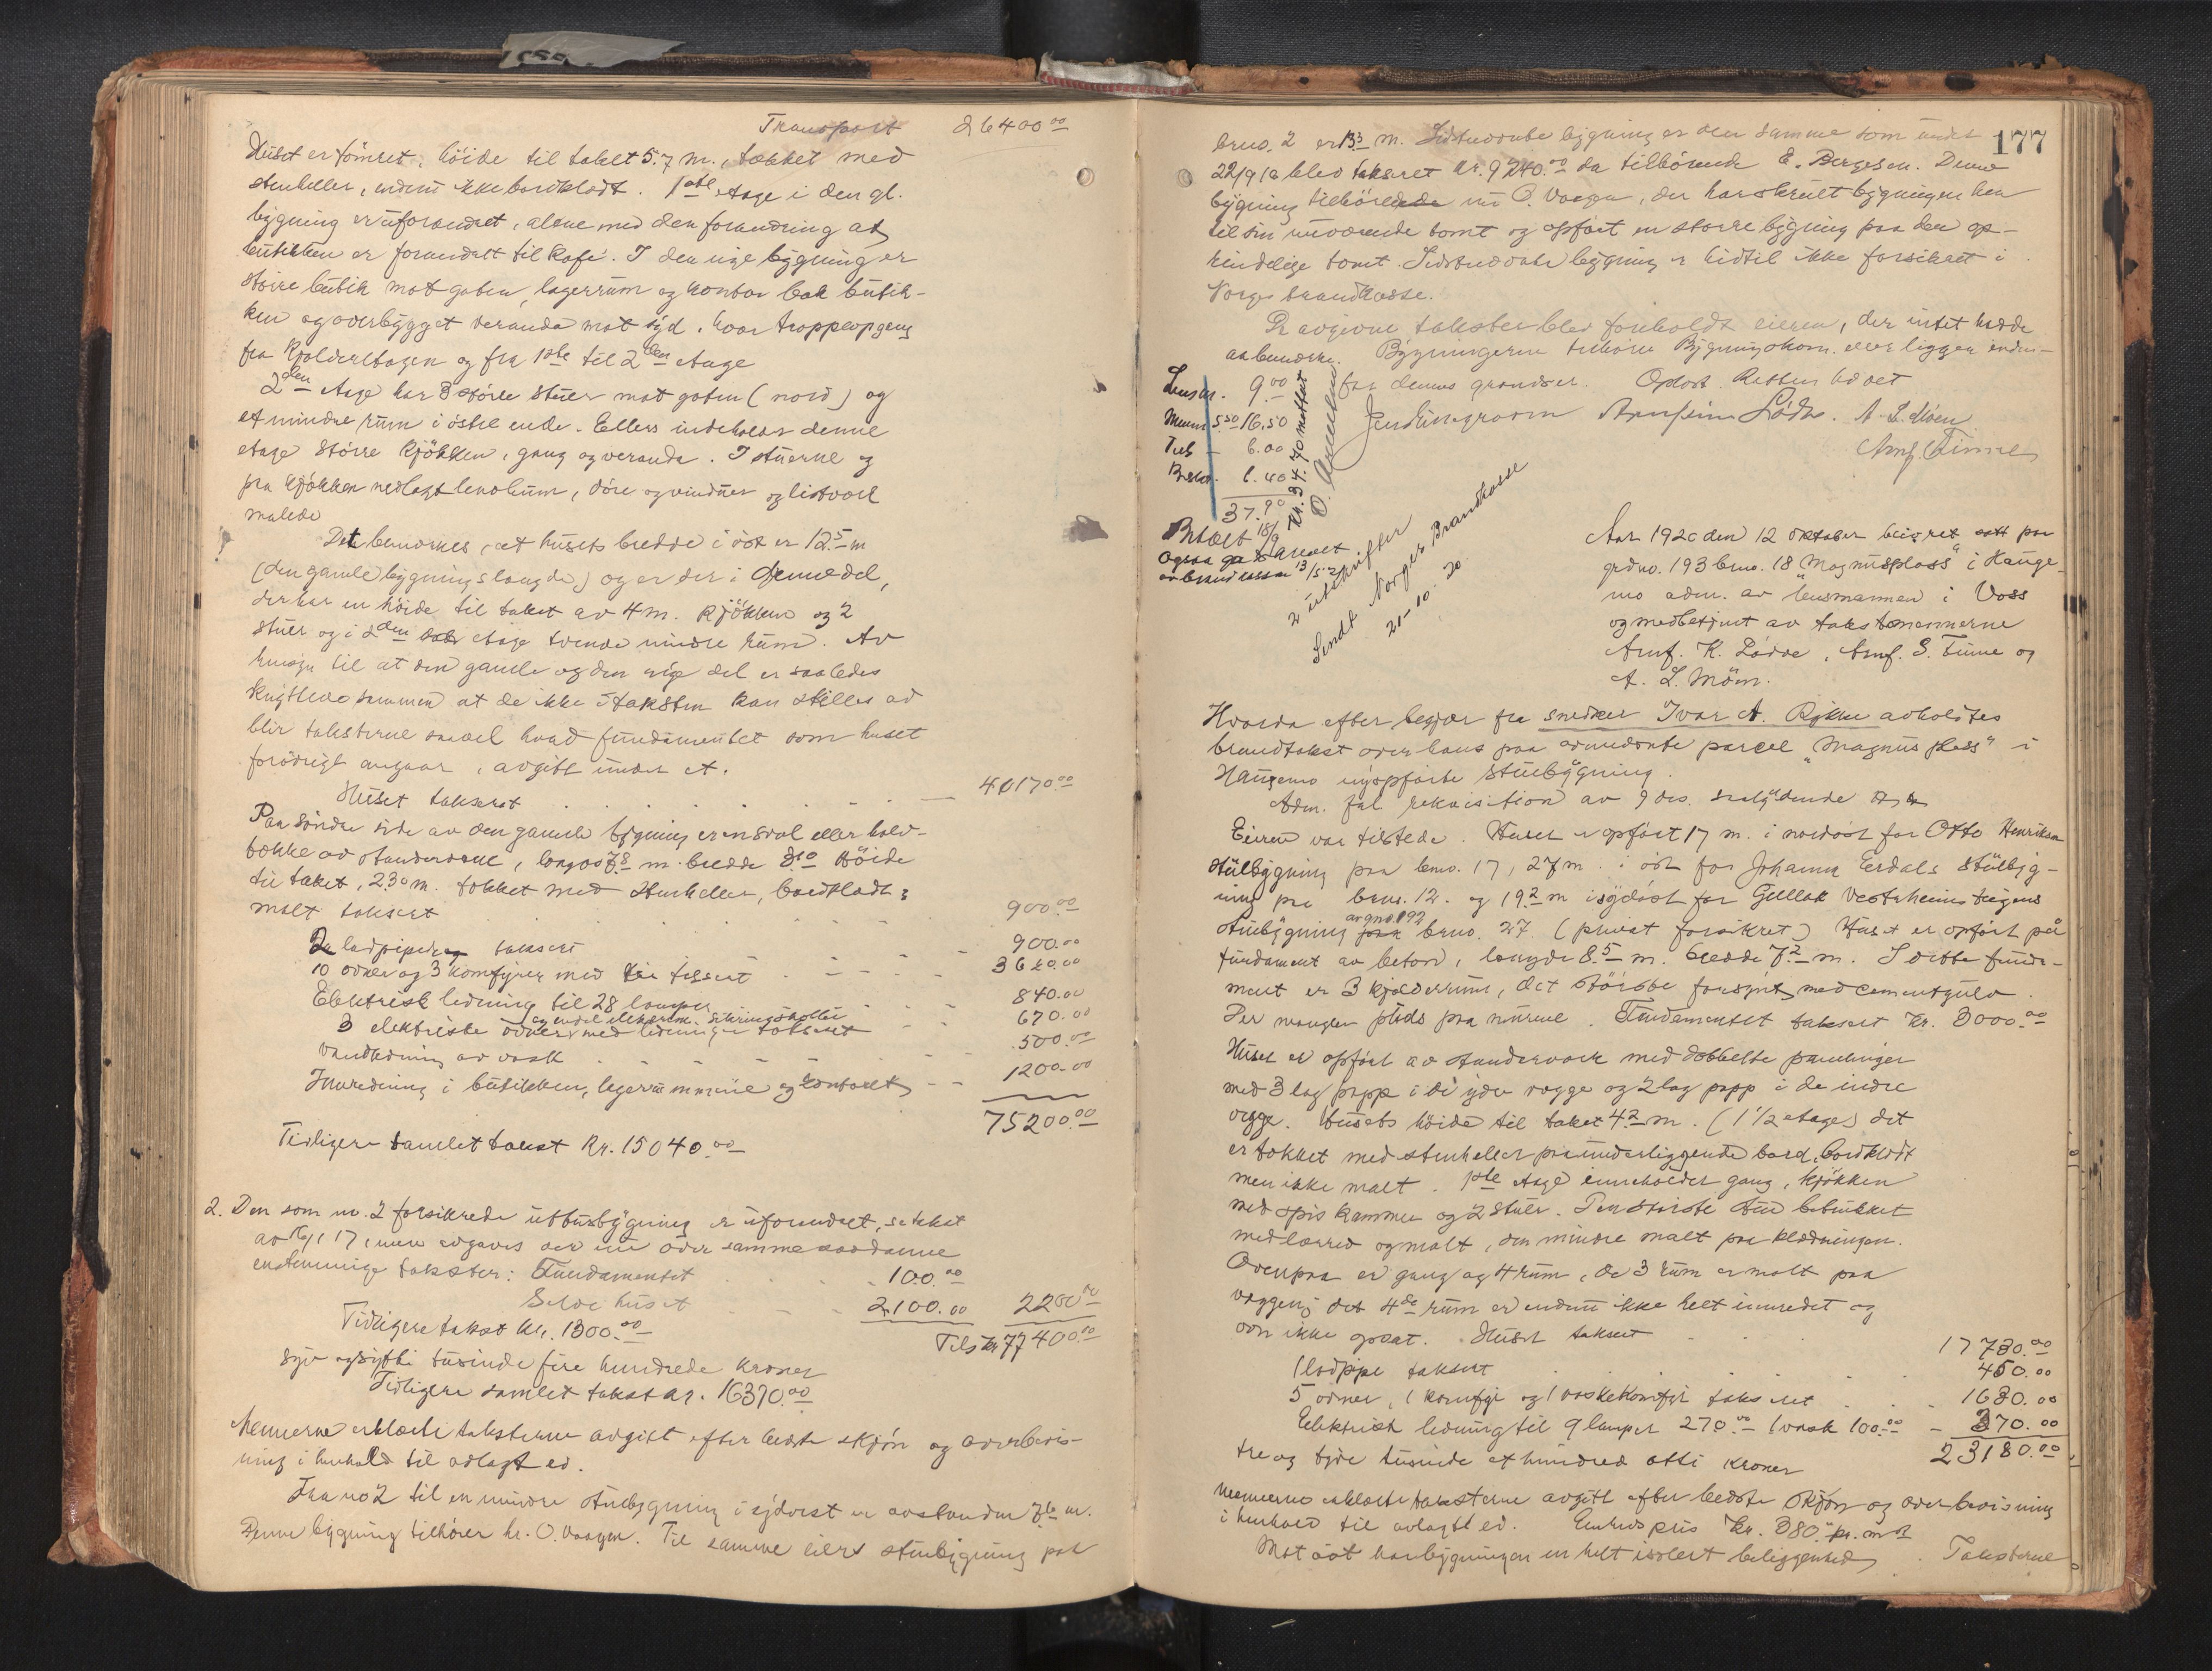 Transport 26400.00
Huset er tømret, höide til taket 5.7 m., tækket med
stenheller, endnu ikke bordklædt. 1ste etage i den gl.
bygning er uforandret, alene med den forandring at
butikken er forandret til kafé. I den nye bygning er
större butik mot gaten, lagerrum og kontor bak butik-
ken og overbygget veranda mot syd, hvor trappeopgang
fra kjælderetagen og fra 1ste til 2den etage
2den etage har 3 större stuer mot gaten (nord) og
et mindre rum i östre ende. Ellers indeholder denne
etage större kjökken, gang og veranda. I stuerne og
paa kjökken nedlagt lenolium, döre og vinduer og listverk
malede
Det bemerkes, at husets bredde i öst er 12.5 m
(den gamle bygnings længde) og er der i
der har en höide til taket av 4 m. kjökken og 2
stuer og i 2den etage tvende mindre rum. Av
hensyn til at den gamle og den nye del er saaledes
knyttede sammen at de ikke i taksten kan skilles ad
blir taksterne saavel hvad fundamentet som huset
forövrigt angaar, avgitt under et.
Huset takseret 40170.00
Paa söndre side av den gamle bygning er en sval eller halv-
tække av stenderverk, længde 7.8 m. bredde 3.10 Höide
til taket, 2.30 m. tækket med stenheller, bordklædt &
malt taksert 900.00
2 ladpiper taksert 900.00
10 ovner og 3 komfyrer med taksert 3620.00
Elektrisk ledning til 28 lamper 840.00
og endel elektrisk sikringskoller
3 elektriske ovner med ledninger taksert 670.00
Vandledning og vask 500.00
Innredning i butikken, lagerrummene og kontoret 1200.00
75200.00
Tidligere samlet takst Kr. 15040.00
2. Den som no. 2 forsikrede uthusbygning er uforandret, se takst
av 17, men avgaves der nu over samme saadanne
enstemmige takster: Fundamentet 100.00
Selve huset 2100.00 2200.00
Tidligere takst kr. 1300.00
Tils. kr 77400.00
syv og sytti tusinde fire hundrede kroner
Tidligere samlet takst kr. 16370.00
Mennerne erklærte taksterne avgitt efter bedste skjön og overbevis-
ning i henhold til avlagt ed.
Fra no 2 til en mindre stuebygning i sydvest er avstanden 7.6 m.
Denne bygning tilhører hr. O. Vaagen. Til samme eiers stuebygning paa
177
bruno. 2 er 13.3 m. Sidstnævnte bygning er den samme som under
22/9 16 blev takseret kr. 9240.00 da tilhörende E. Bergesen. Denne
bygning tilhörer nu O. Vaagen, der har skrudt bygningen hen
til sin nuværende tomt og opført en större bygning paa den op-
rindelige tomt. Sidstnævnte bygning er hidtil ikke forsikret i
Norges brandkasse.
De avgivne takster blev foreholdt eieren, der intet hadde
at bemerke. Bygningerne tilhörer Bygningskom. eller ligger inden-
for dennes grændser. Oplæst. Retten hævet
Lensm. 9.00
Menn 5.50 16.50
Tils 6.00
Beskr. 6.40
37.90
Kr. 34.70 mottat
Jens Lunggreen Arnfinn Lödve. A. L. Möen
Arnf. Finne
Betalt 18/9
av brandkassen 13/5
2 utskrifter
Sendt Norges Brandkasse
21-10-20
Aar 1920 den 12 oktober blev ret satt paa
grdno. 193 bruno. 18 "Magnusplass" i Hauge-
mo adm. av lensmannen i Voss
og medbetjent av takstmennerne
Arnf. K. Lödve, Arnf. S. Finne og
A. L. Möen.
Hvorda efter begjær fra snedker Ivar A. Rykke avholdtes
brandtakst over hans paa ovennevnte parcel "Magnusplass" i
Haugemo nyopførte stuebygning.
Adm. fak rekvisition av 9 ds. saalydende
Eieren var tilstede. Huset er opført 17 m. i nordöst for Otto Henriksen
stuebygning paa bruno. 17, 27 m. i öst for Johanna Erdals stuebyg-
ning paa bruno. 12. og 19.2 m i sydöst for Gullak Vestrheims
stuebygning av gno. 192 bruno. 27. (privat forsikret) Huset er opført på
fundament av beton, længde 8.5 m. bredde 7.2 m. I dette funda-
ment er 3 kjælderrum, det störste forsynt med cementgulv.
Der mangler puds paa murene. Fundamentet taksert Kr. 3000.00
Huset er opført av stenderverk med dobbelte panelinger
med 3 lag papp i de ydre vegge og 2 lag papp i de indre
vegge. Husets höide til taket 4.2 m. (1 1/2 etage) det
er tækket med stenheller paa underliggende bord, bordklædt
men ikke malt. 1ste etage inneholder gang, kjökken
med spiskammer og 2 stuer. Den störste stue betrukket
med lærred og malt, den mindre malt paa klædningen.
Ovenpaa er gang og 4 rum, de 3 rum er malt paa
veggen, det 4de rum er endnu ikke helt innredet og
ovn ikke opsat. Huset taksert 17730.00
1 ladpipe taksert 450.00
5 ovner, 1 komfyr og 1 vaskekomfyr taksert 1630.00
Elektrisk ledning til 9 lamper 270.00 1 vask 100.00 370.00
23180.00
tre og tyve tusinde et hundred otti kroner
Mennerne erklærte taksterne avgitt efter bedste skjön og overbevisning
i henhold til avlagt ed. Enhedspris Kr. 380 pr. m2
Mot öst har bygningen en helt isolert beliggenhed. Taksterne